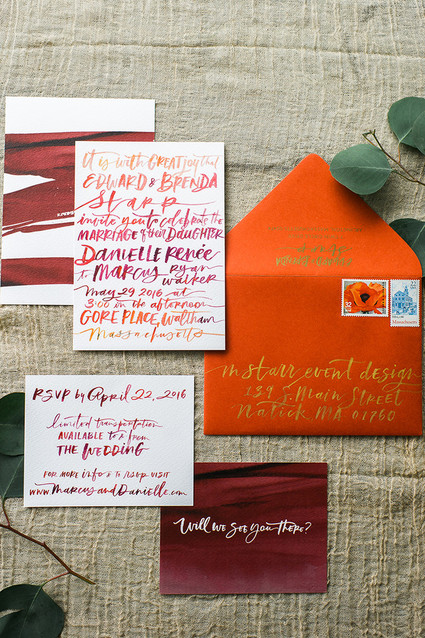 It is with GREAT joy that
EDWARD & BRENDA
Starr
invite you to celebrate the
MARRIAGE of their DAUGHTER
DANIELLE Renée
to MARCUS RYAN
WALKER
May 29 2016 at
3:00 in the afternoon
GORE PLACE, Waltham
Massachusetts
32
USA
22
Massachusetts
mstarr event design
139 S. Main Street
Natick MA 01760
RSVP by April 22, 2016
limited transportation
AVAILABLE to & from
THE WEDDING
FOR MORE info & to rsvp VISIT
www.MarcusandDanielle.com
Will we see you there?